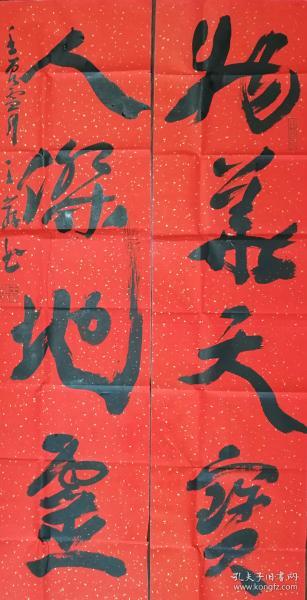 物華天寶
人傑地靈
壬辰雪月
孔夫子旧书网